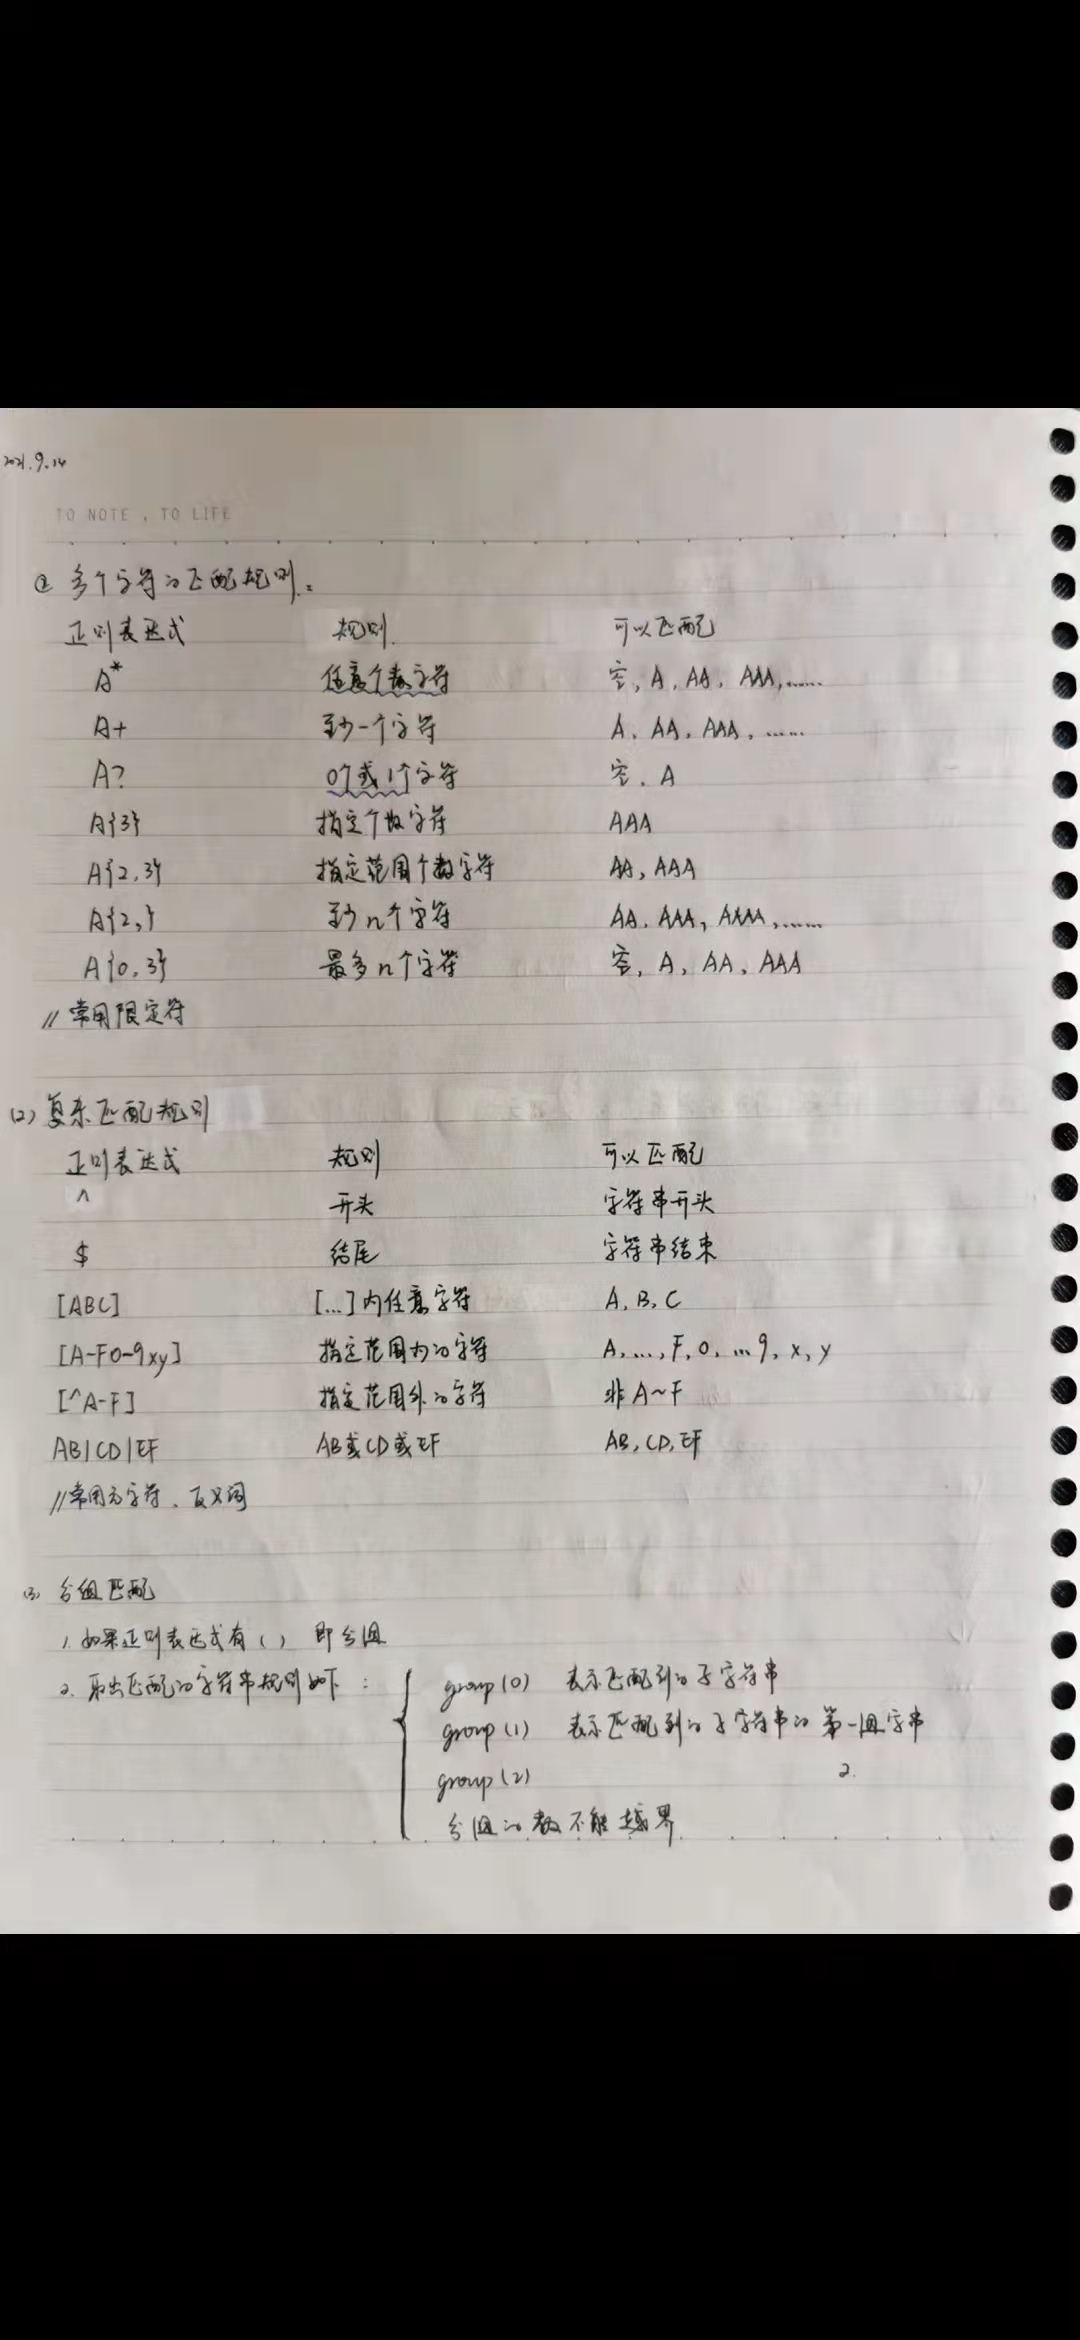 2021.9.14
TO NOTE , TO LIFE
② 多个字符的匹配规则。
正则表达式 规则 可以匹配
A* 任意个数字符 空, A, AA, AAA, ......
A+ 至少一个字符 A, AA, AAA, ......
A? 0个或1个字符 空, A
A{3} 指定个数字符 AAA
A{2,3} 指定范围个数字符 AA, AAA
A{2,} 至少n个字符 AA, AAA, AAAA, ......
A{0,3} 最多n个字符 空, A, AA, AAA
// 常用限定符
(2) 复杂匹配规则
正则表达式 规则 可以匹配
^ 开头 字符串开头
$ 结尾 字符串结束
[ABC] [...]内任意字符 A, B, C
[A-F0-9xy] 指定范围内的字符 A, ..., F, 0, ... 9, x, y
[^A-F] 指定范围外的字符 非A~F
AB|CD|EF AB或CD或EF AB, CD, EF
//常用元字符、反义词
(3) 分组匹配
1. 如果正则表达式有 ( ) 即分组
2. 取出匹配的字符串规则如下 :
group(0) 表示匹配到的子字符串
group(1) 表示匹配到的子字符串的第一组字串
group(2) 2.
分组的数不能越界